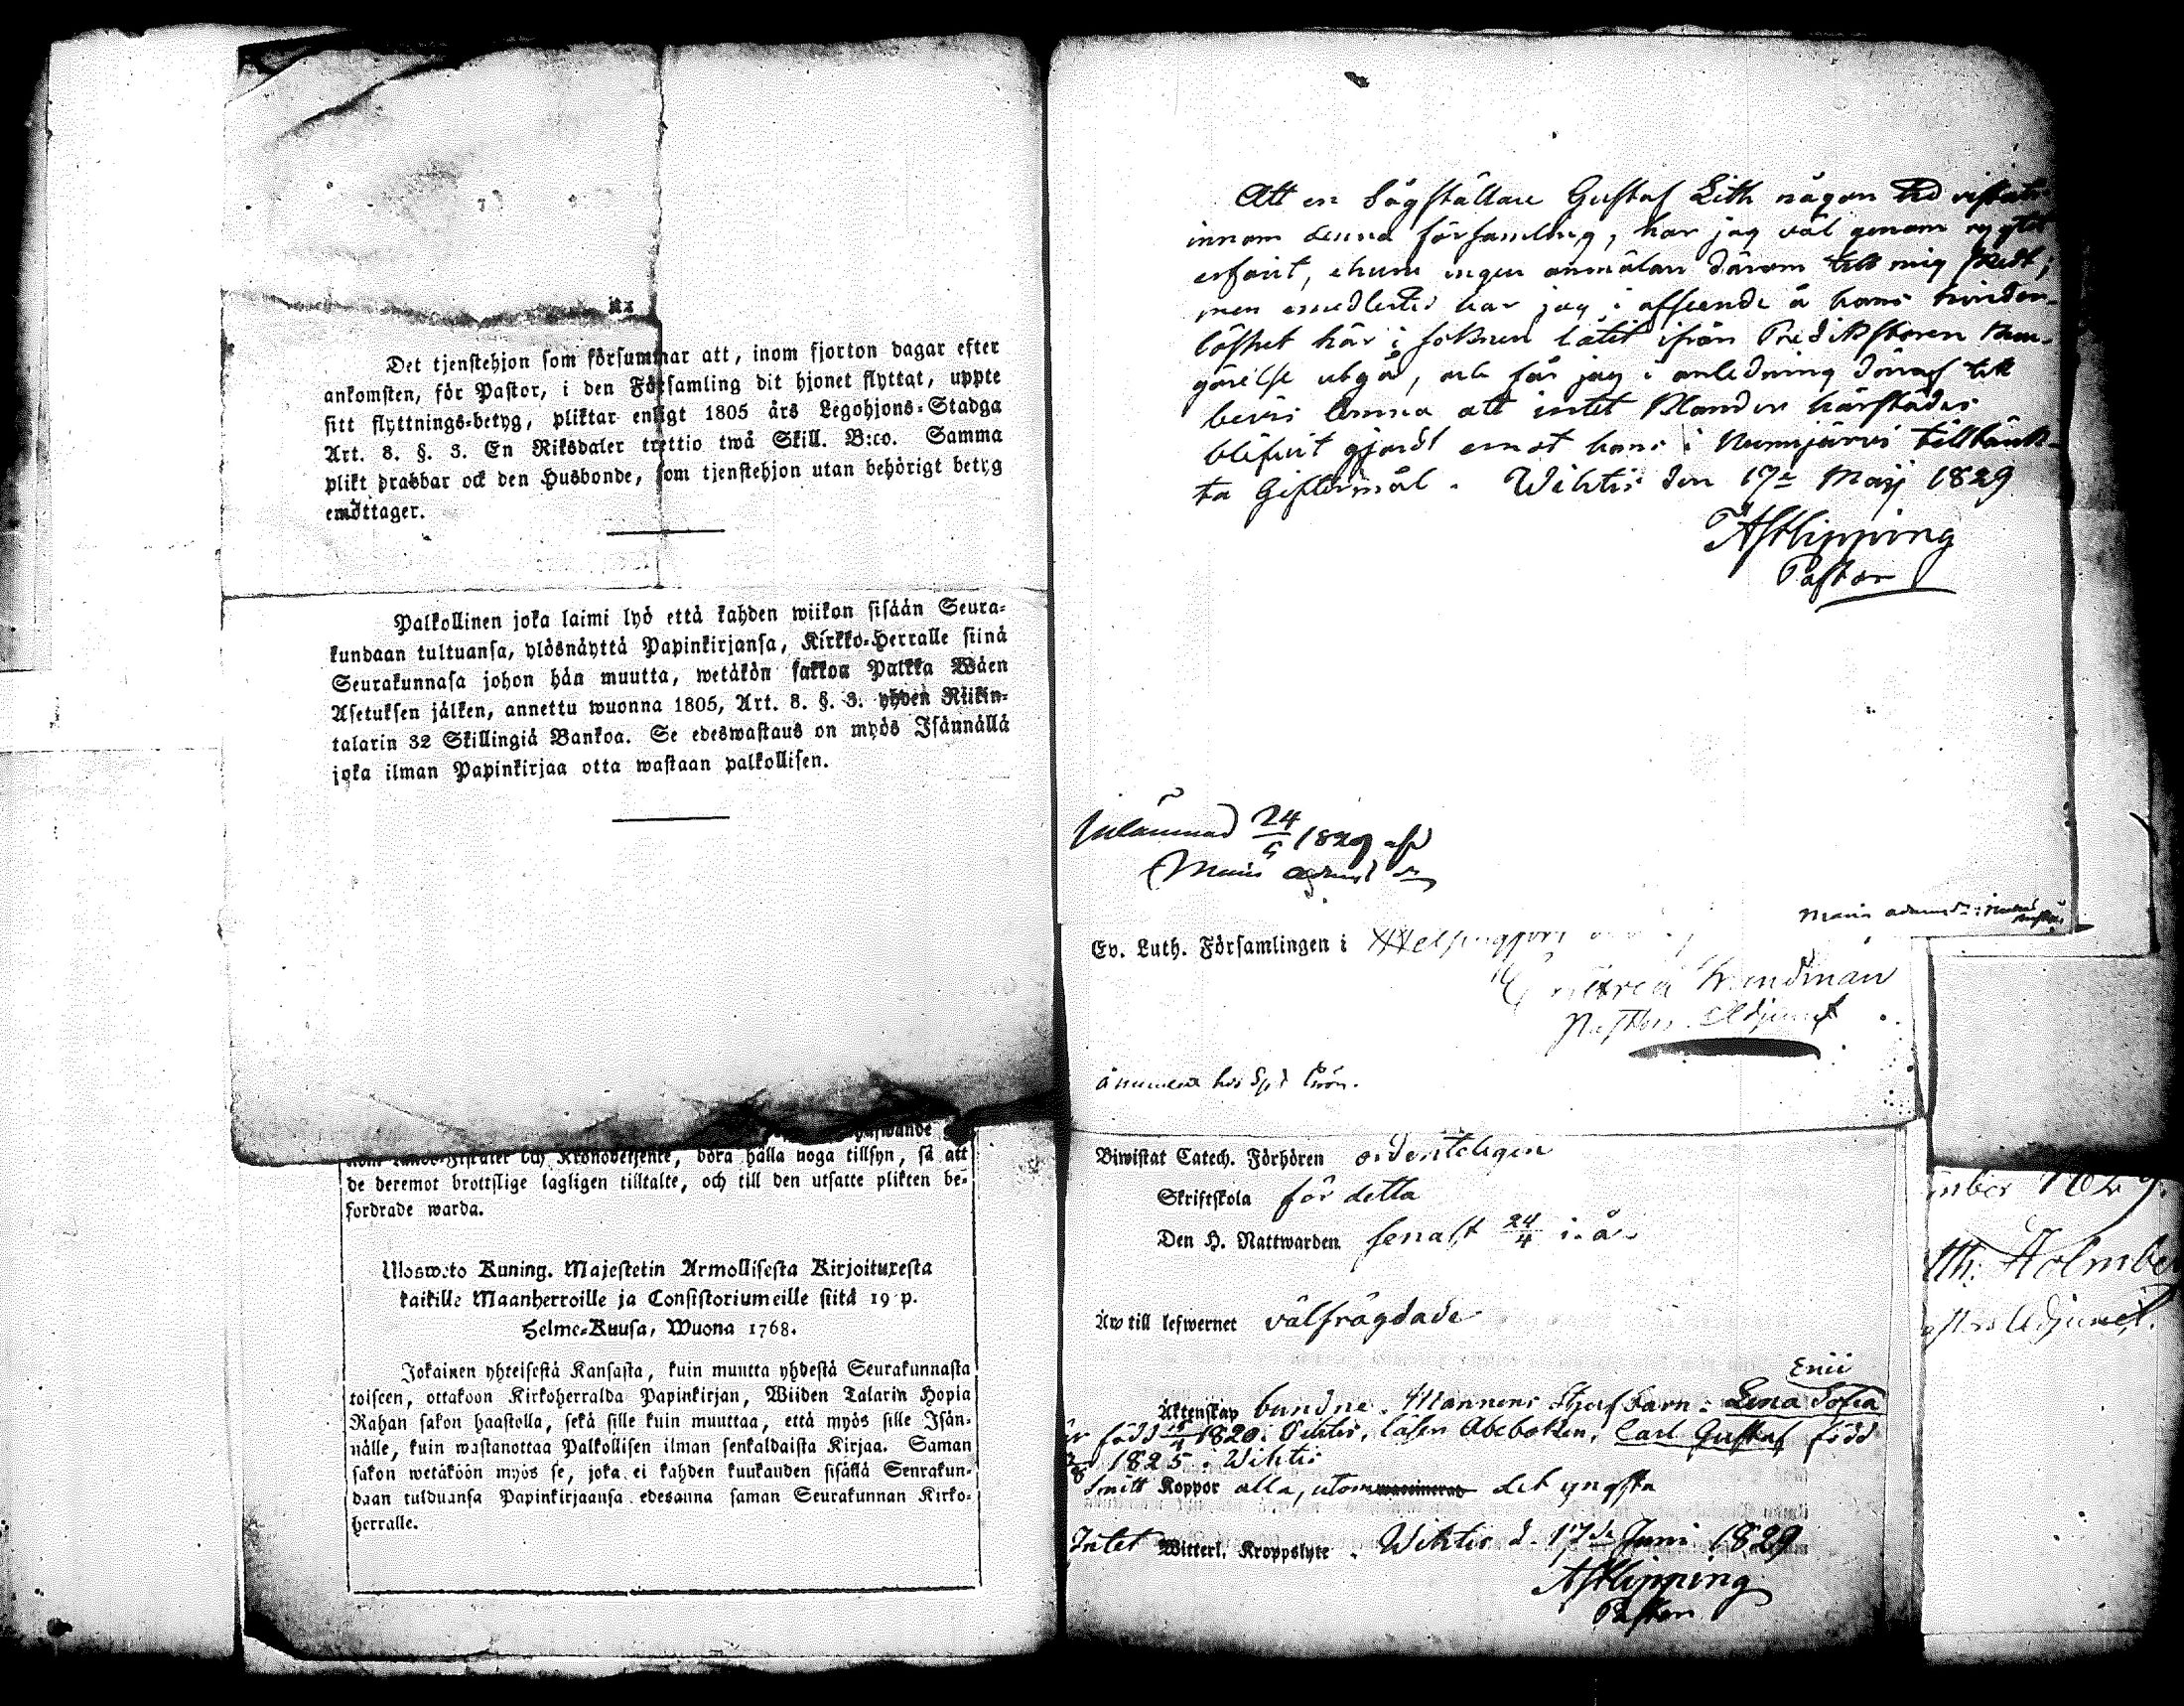 Det tjenstehjon som försummar att, inom fjorton dagar efter
ankomsten, för Pastor, i den Församling dit hjonet flyttat, uppte
sitt flyttnings-betyg, pliktar enligt 1805 års Legohjons-Stadga
Art. 8. §. 3. En Riksdaler trettio twå Skill. B:co. Samma
plikt drabbar ock den Husbonde, som tjenstehjon utan behörigt betyg
emottager.
Palkollinen joka laimi lyö että kahden wiikon sisään Seura-
kundaan tultuansa, ylösnäyttä Papinkirjansa, Kirkko-Herralle siinä
Seurakunnasa johon hän muutta, wetäkön sakkoa Palkka Wäen
Asetuksen jälken, annettu wuonna 1805, Art. 8. §. 3. yhden Riikin-
talarin 32 Skillingiä Bankoa. Se edeswastaus on myös Isännällä
joka ilman Papinkirjaa otta wastaan palkollisen.
och Kronobetjente, böra hålla noga tillsyn, så att
de deremot brottslige lagligen tilltalte, och till den utsatte plikten be-
fordrade warda.
Ulosweto Kuning. Majestetin Armollisesta Kirjoituxesta
kaikille Maanherroille ja Consistoriumeille siitä 19 p.
Helme-Kuusa, Wuona 1768.
Jokainen yhteisestä Kansasta, kuin muutta yhdestä Seurakunnasta
toiseen, ottakoon Kirkoherralda Papinkirjan, Wiiden Talarin Hopia
Rahan sakon haastolla, sekä sille kuin muuttaa, että myös sille Isän-
nälle, kuin wastanottaa Palkollisen ilman senkaldaista Kirjaa. Saman
sakon wetäköön myös se, joka ei kahden kuukauden sisällä Seurakun-
daan tulduansa Papinkirjaansa edesanna saman Seurakunnan Kirko-
herralle.
Att en Sågställare Gustaf Lith någon tid vistats
innom denna församling, har jag väl genom ryktet
erfarit, ehuru ingen anmälan därom till mig skedt;
men emedlertid har jag i afseende å hans hinder-
löshet här i soknen låtit ifrån Predikstolen kun-
görelse utgå, och får jag i anledning däraf till
bevis lemna att intet klander härstädes
blifvit gjordt emot hans i Nurmijärvi tilltänk-
ta Giftermål. Wihtis den 17de Maji 1829
AFKlipping
Pastor
Inlämnad 24/5 1829 af
Ev. Luth. Församlingen i Helsingfors
Pastors Adjunct
Biwistat Catech. Förhören ordenteligen
Skriftskola för detta
Den H. Nattwarden senast 24/4 i. å.
Äro till lefwernet välfrägdade
Enii
Äktenskap bundne. Mannens Styfbarn: Lena Sofia
är född 1820 i Vihtis, läser Abeboken, Carl Gustaf född
1825 i Wihtis
Smitt Koppor alla, utom det yngsta
Intet Witterl. Kroppslyte. Wihtis d. 17de Juni 1829
AFKlipping
Pastor
mber 1829.
th: Holmbe
Adjunct.